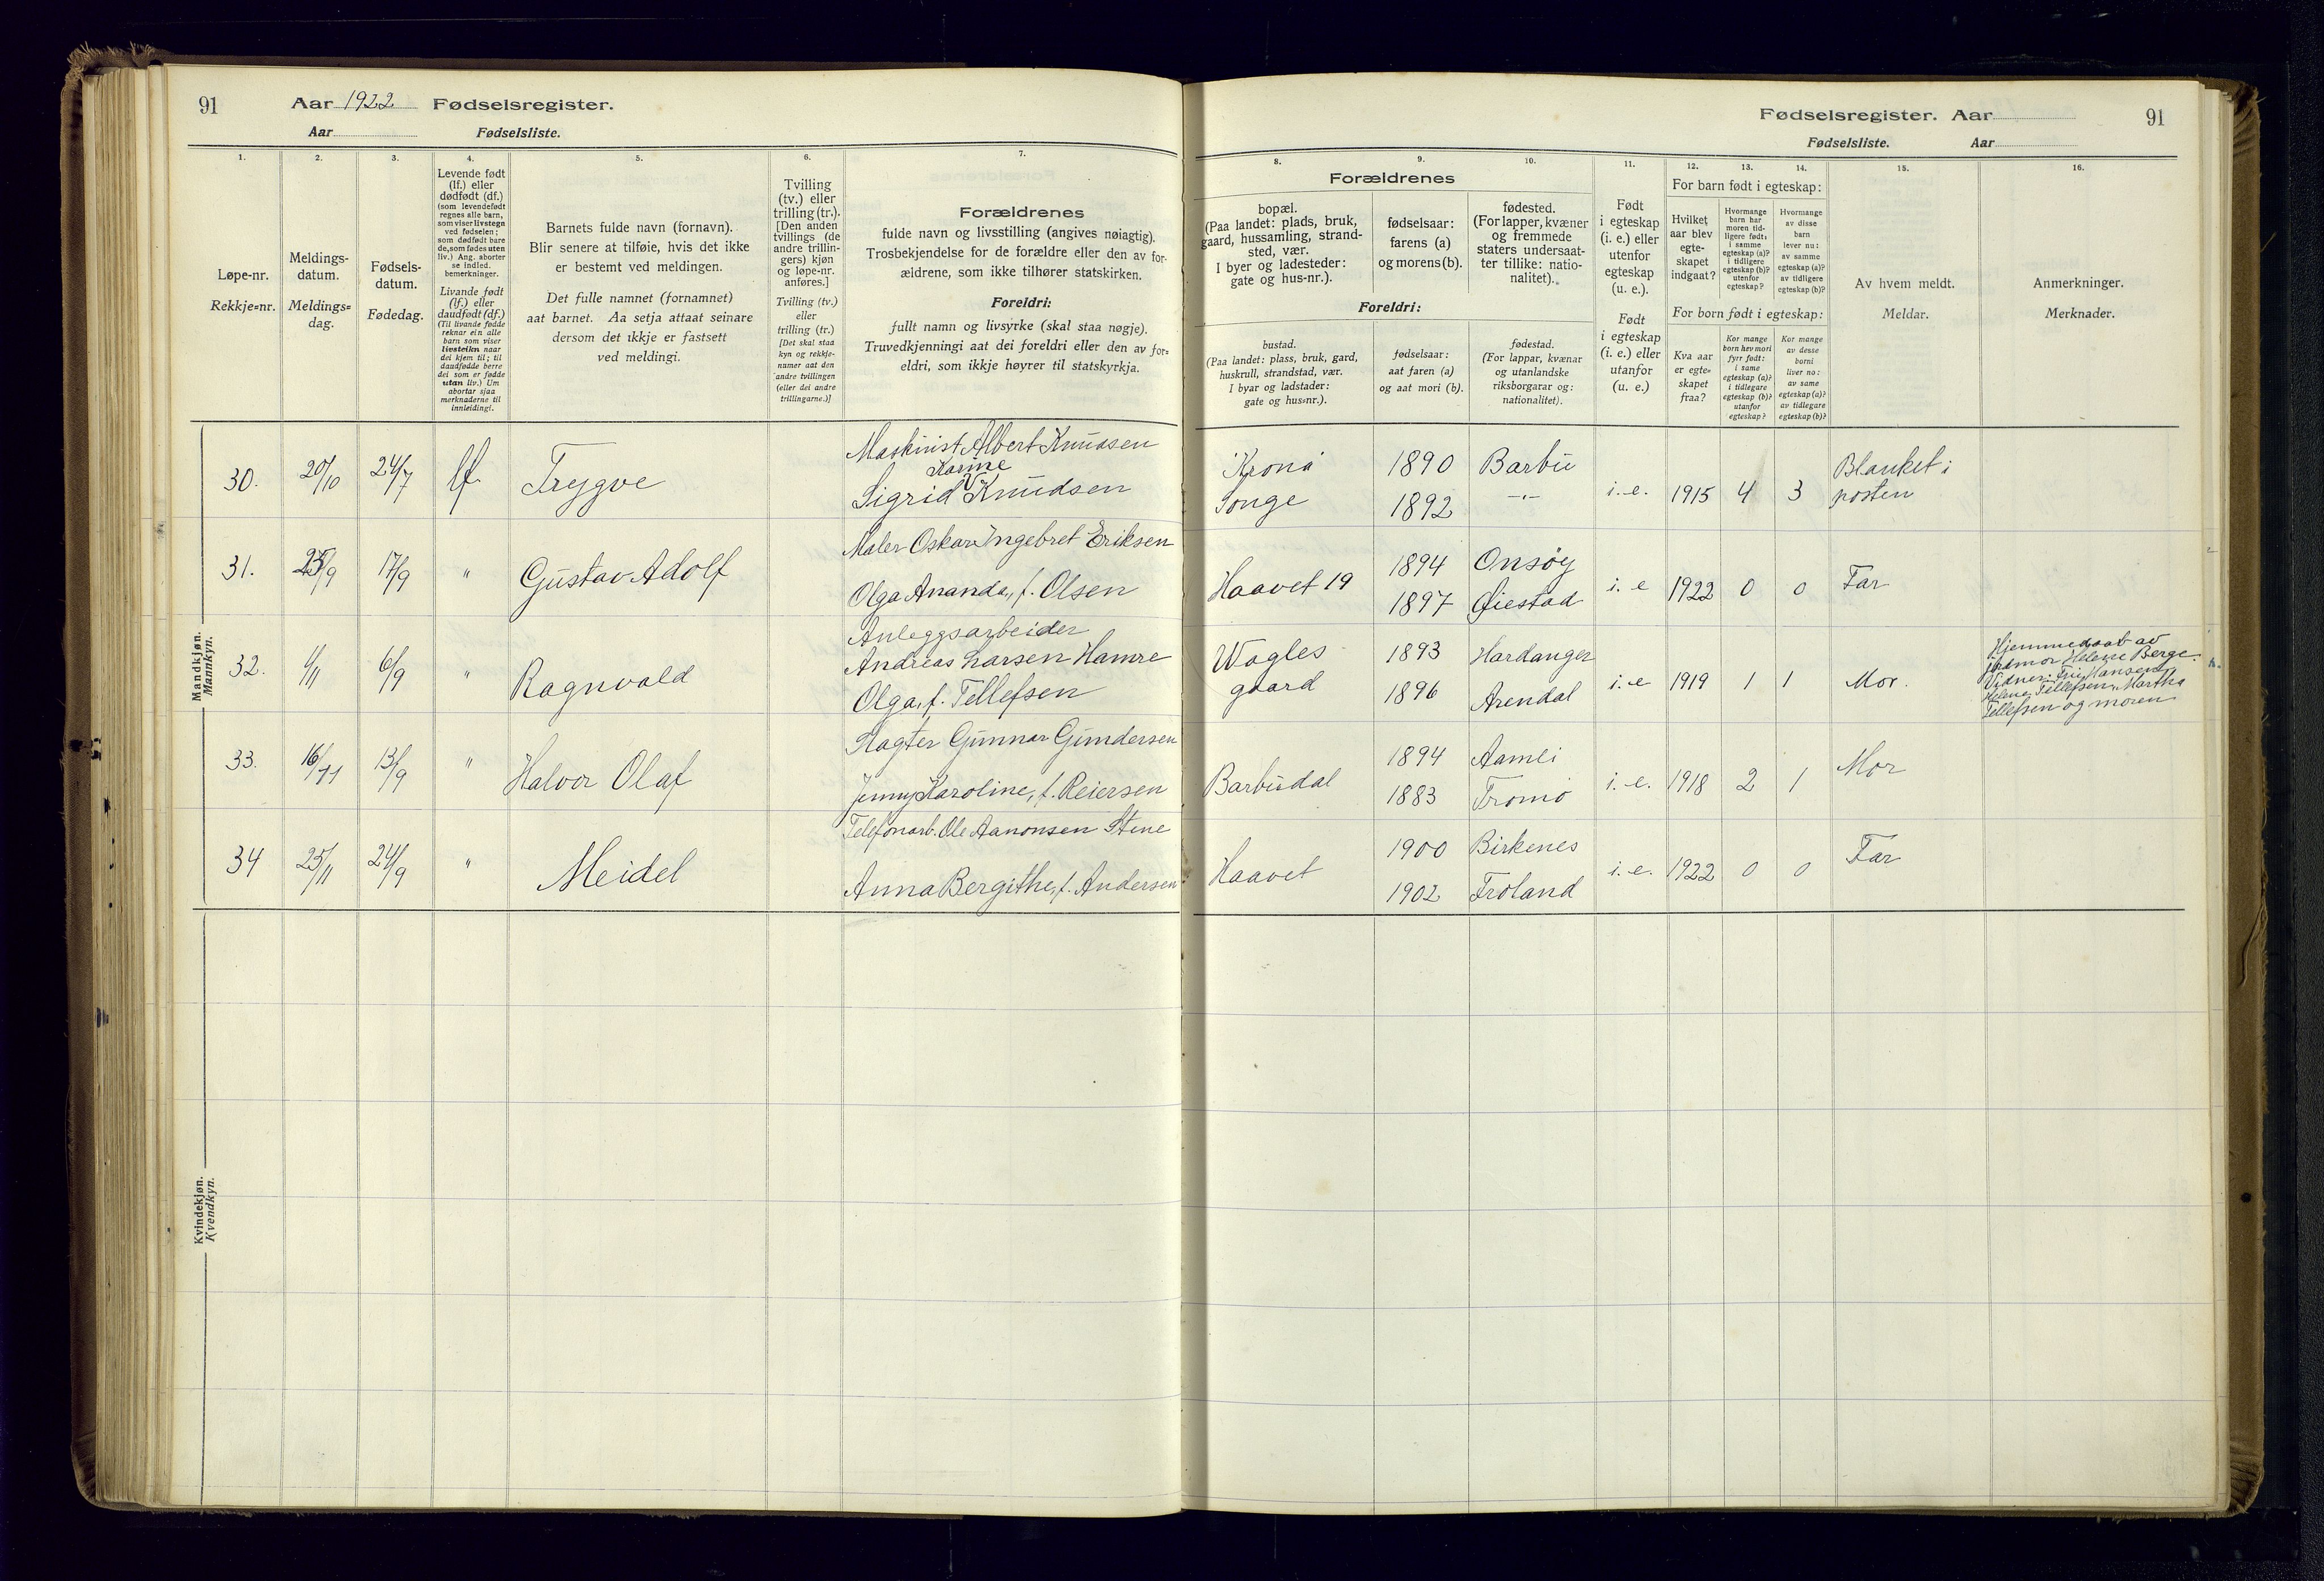 91 Aar 1922 Fødselsregister.
Aar Fødselsliste.
Fødselsregister. Aar 91
Fødselsliste. Aar
1.
Løpe-nr.
Rekkje=nr.
2.
Meldings-
datum.
Meldings=
dag.
3.
Fødsels-
datum.
Fødedag.
4.
Levende født
(lf.) eller
dødfødt (df.)
(som levendefødt
regnes alle barn,
som viser livstegn
ved fødselen;
som dødfødt bare
de, som fødes uten
liv.) Ang. aborter
se indled.
bemerkninger.
Livande født
(lf.) eller
daudfødt (df.)
(Til livande fødde
reknar ein alle
barn som viser
livsteikn naar
dei kjem til; til
daudfødde berre
dei som er fødde
utan liv.) Um
abortar sjaa
merknaderne til
innleidingi.
5.
Barnets fulde navn (fornavn).
Blir senere at tilføie, hvis det ikke
er bestemt ved meldingen.
Det fulle namnet (fornamnet)
aat barnet. Aa setja attaat seinare
dersom det ikkje er fastsett
ved meldingi.
6.
Tvilling
(tv.) eller
trilling (tr.).
[Den anden
tvillings (de
andre trillin-
gers) kjøn
og løpe-nr.
anføres.]
Tvilling (tv.)
eller
trilling (tr.)
[Det skal staa
kyn og rekkje-
numer aat den
andre tvillingen
(eller dei andre
trillingarne.)]
7.
Forældrenes
fulde navn og livsstilling (angives nøiagtig).
Trosbekjendelse for de forældre eller den av for-
ældrene, som ikke tilhører statskirken.
Foreldri:
fullt namn og livsyrke (skal staa nøgje).
Truvedkjenningi aat dei foreldri eller den av for=
eldri, som ikkje høyrer til statskyrkja.
Forældrenes
8.
bopæl.
(Paa landet: plads, bruk,
gaard, hussamling, strand-
sted, vær.
I byer og ladesteder:
gate og hus-nr.).
9.
fødselsaar:
farens (a)
og morens (b).
10.
fødested.
(For lapper, kvæner
og fremmede
staters undersaat-
ter tillike: natio-
nalitet).
Foreldri:
bustad.
(Paa landet: plass, bruk, gard,
huskrull, strandstad, vær.
I byar og ladstader:
gate og hus=nr.).
fødselsaar:
aat faren (a)
og aat mori (b).
fødestad.
(For lappar, kvænar
og utanlandske
riksborgarar og:
nationalitet).
11.
Født
i egteskap
(i. e.) eller
utenfor
egteskap
(u. e.).
Født
i egteskap
(i. e.) eller
utanfor
(u. e.)
12. 13. 14.
For barn født i egteskap:
Hvilket
aar blev
egte-
skapet
indgaat?
Hvormange
barn har
moren tid-
ligere født:
i samme
egteskap (a)?
i tidligere
egteskap (b)?
utenfor
egteskap?
Hvormange
av disse
barn
lever nu:
av samme
egteskap (a)?
av tidligere
egteskap (b)?
For born født i egteskap:
Kva aar
er egte=
skapet
fraa?
Kor mange
born hev mori
fyrr født:
i same
egteskap (a)?
i tidlegare
egteskap (b)?
utanfor
egteskap?
Kor mange
av desse
borni
liver no:
av same
egteskap (a)?
av tidlegare
egteskap (b)?
15.
Av hvem meldt.
Meldar.
16.
Anmerkninger.
Merknader.
Mandkjøn.
Mannkyn.
30. 20/10 24/7 lf. Trygve
Maskinist Albert Knudsen
Karine
Sigrid V Knudsen
Kronå
Songe
1890 Barbu
1892 -"-
i.e. 1915 4 3
Blanket i
posten
31. 25/9 17/9 " Gustav Adolf
Maler Oskar Ingebret Eriksen
Olga Ananda, f. Olsen
Haavet 19
1894 Onsøy
1897 Øiestad
i.e 1922 0 0 Far
32. 4/11 6/9 " Ragnvald
Anleggsarbeider
Andreas Larsen Hamre
Olga, f. Tellefsen
Wagles
gaard
1893 Hardanger
1896 Arendal
i.e 1919 1 1 Mor.
Hjemmedaab av
jordmor Helene Berge.
Vidner: Hansen,
Helene Tellefsen, Martha
Tellefsen og moren
33. 16/11 13/9 " Halvor Olaf
Slagter Gunnar Gundersen
Jenny Karoline, f. Reiersen
Barbudal
1894 Aamli
1883 Tromø
i.e. 1918 2 1 Mor
34 25/11 24/9 " Meidel
Telefonarb. Ole Aanonsen Stene
Anna Bergithe, f. Andersen
Haavet
1900 Birkenes
1902 Froland
i.e. 1922 0 0 Far
Kvindekjøn.
Kvendkyn.